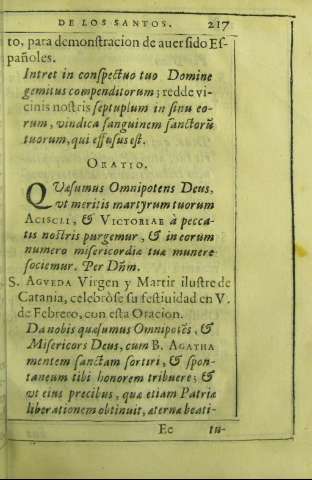 DE LOS SANTOS. 217
to, para demonstracion de auer sido Es-
pañoles.
Intret in conspectuo tuo Domine
gemitus compenditorum; redde vi-
cinis nostris septuplum in sinu eo-
rum, vindica sanguinem sanctorũ
tuorum, qui effusus est.
ORATIO.
QVæsumus Omnipotens Deus,
vt meritis martyrum tuorum
ACISCLI, & VICTORIAE à pecca-
tis nostris purgemur, & in eorum
numero misericordiæ tuæ munere
sociemur. Per Dñm.
S. AGVEDA Virgen y Martir ilustre de
Catania, celebròse su festiuidad en V.
de Febrero, con esta Oracion.
Da nobis quæsumus Omnipotẽs, &
Misericors Deus, cum B. AGATHA
mentem sanctam sortiri, & spon-
taneum tibi honorem tribuere; &
vt eius precibus, quæ etiam Patriæ
liberationem obtinuit, æternæ beati-
Ee tu-